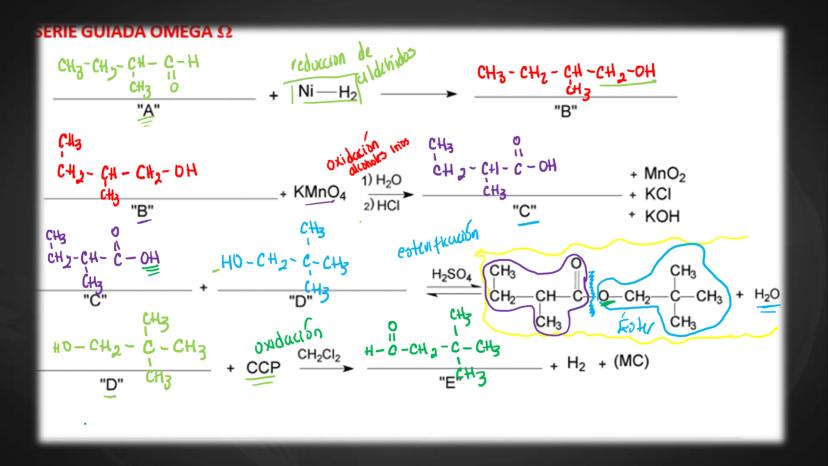 SERIE GUIADA OMEGA Ω
CH3-CH2-CH-C-H
CH3 O
"A"
+ Ni—H2
reducción de aldehidos
CH3-CH2-CH-CH2-OH
CH3
"B"
CH3
CH2-CH-CH2-OH
CH3
"B"
+ KMnO4
oxidación
alcoholes 1rios
1) H2O
2) HCl
CH3 O
CH2-CH-C-OH
CH3
"C"
+ MnO2
+ KCl
+ KOH
CH3 O
CH2-CH-C-OH
CH3
"C"
+
CH3
HO-CH2-C-CH3
CH3
"D"
esterificación
H2SO4
CH3 O CH3
CH2—CH—C—O—CH2—C—CH3 + H2O
CH3 Éster CH3
CH3
HO-CH2-C-CH3
CH3
"D"
+ CCP
oxidación
CH2Cl2
O CH3
H-C-CH2-C-CH3
CH3
"E"
+ H2 + (MC)